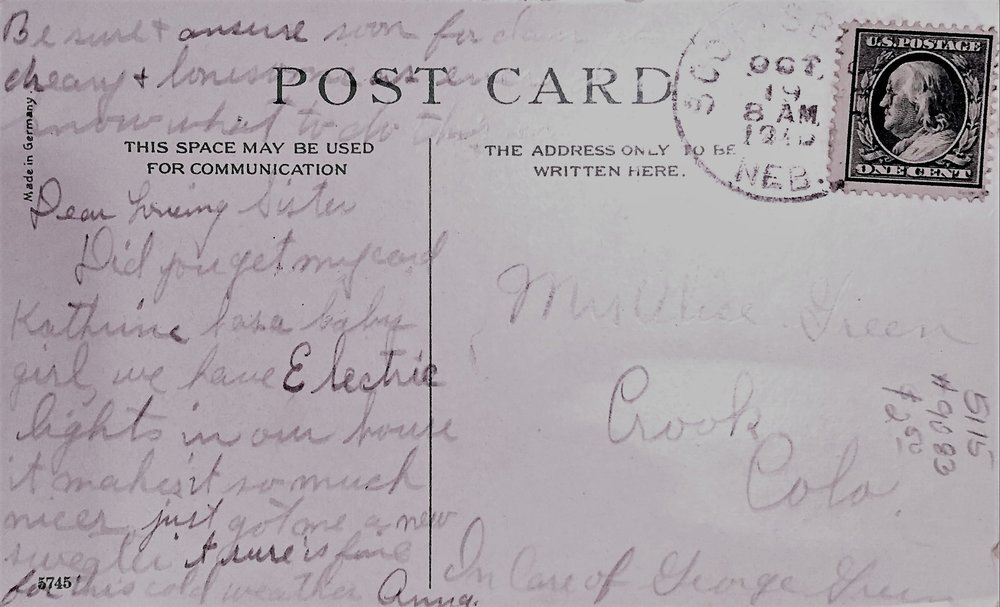 Be sure + ansure soon for
dreary + lonesome
know what to do
POST CARD
Made in Germany.
THIS SPACE MAY BE USED
FOR COMMUNICATION
THE ADDRESS ONLY TO BE
WRITTEN HERE.
OCT
19
8 AM
NEB.
U.S. POSTAGE
ONE CENT
Dear Loveing Sister
Did you get my card
Kathrine has a baby
girl, we have Electric
lights in our house
it makes it so much
nicer, just got me a new
sweater it sure is fine
for this cold weather Anna.
5745
Mrs Alice Green
Crook
Colo.
In Care of George Green
5115
#9083
$2.50